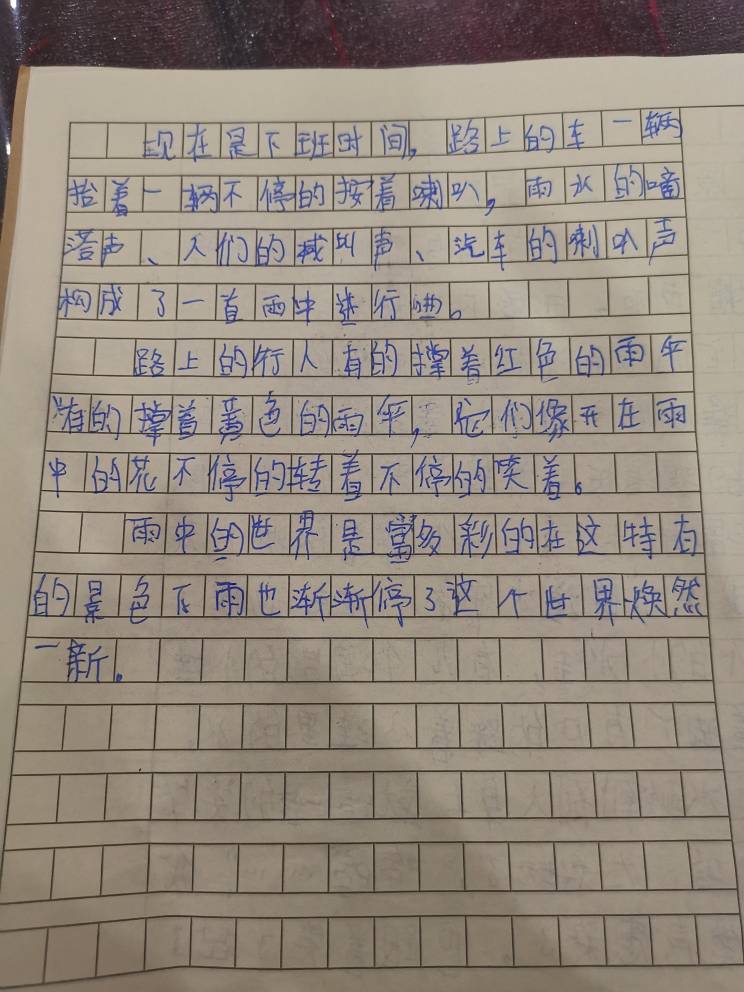 现在是下班时间，路上的车一辆
挨着一辆不停的按着喇叭，雨水的嘀
嗒声、人们的喊叫声、汽车的喇叭声
构成了一首雨中进行曲。
路上的行人有的撑着红色的雨伞
有的撑着黄色的雨伞，它们像开在雨
中的花不停的转着不停的笑着。
雨中的世界是富多彩的在这特有
的景色下雨也渐渐停了这个世界焕然
一新。